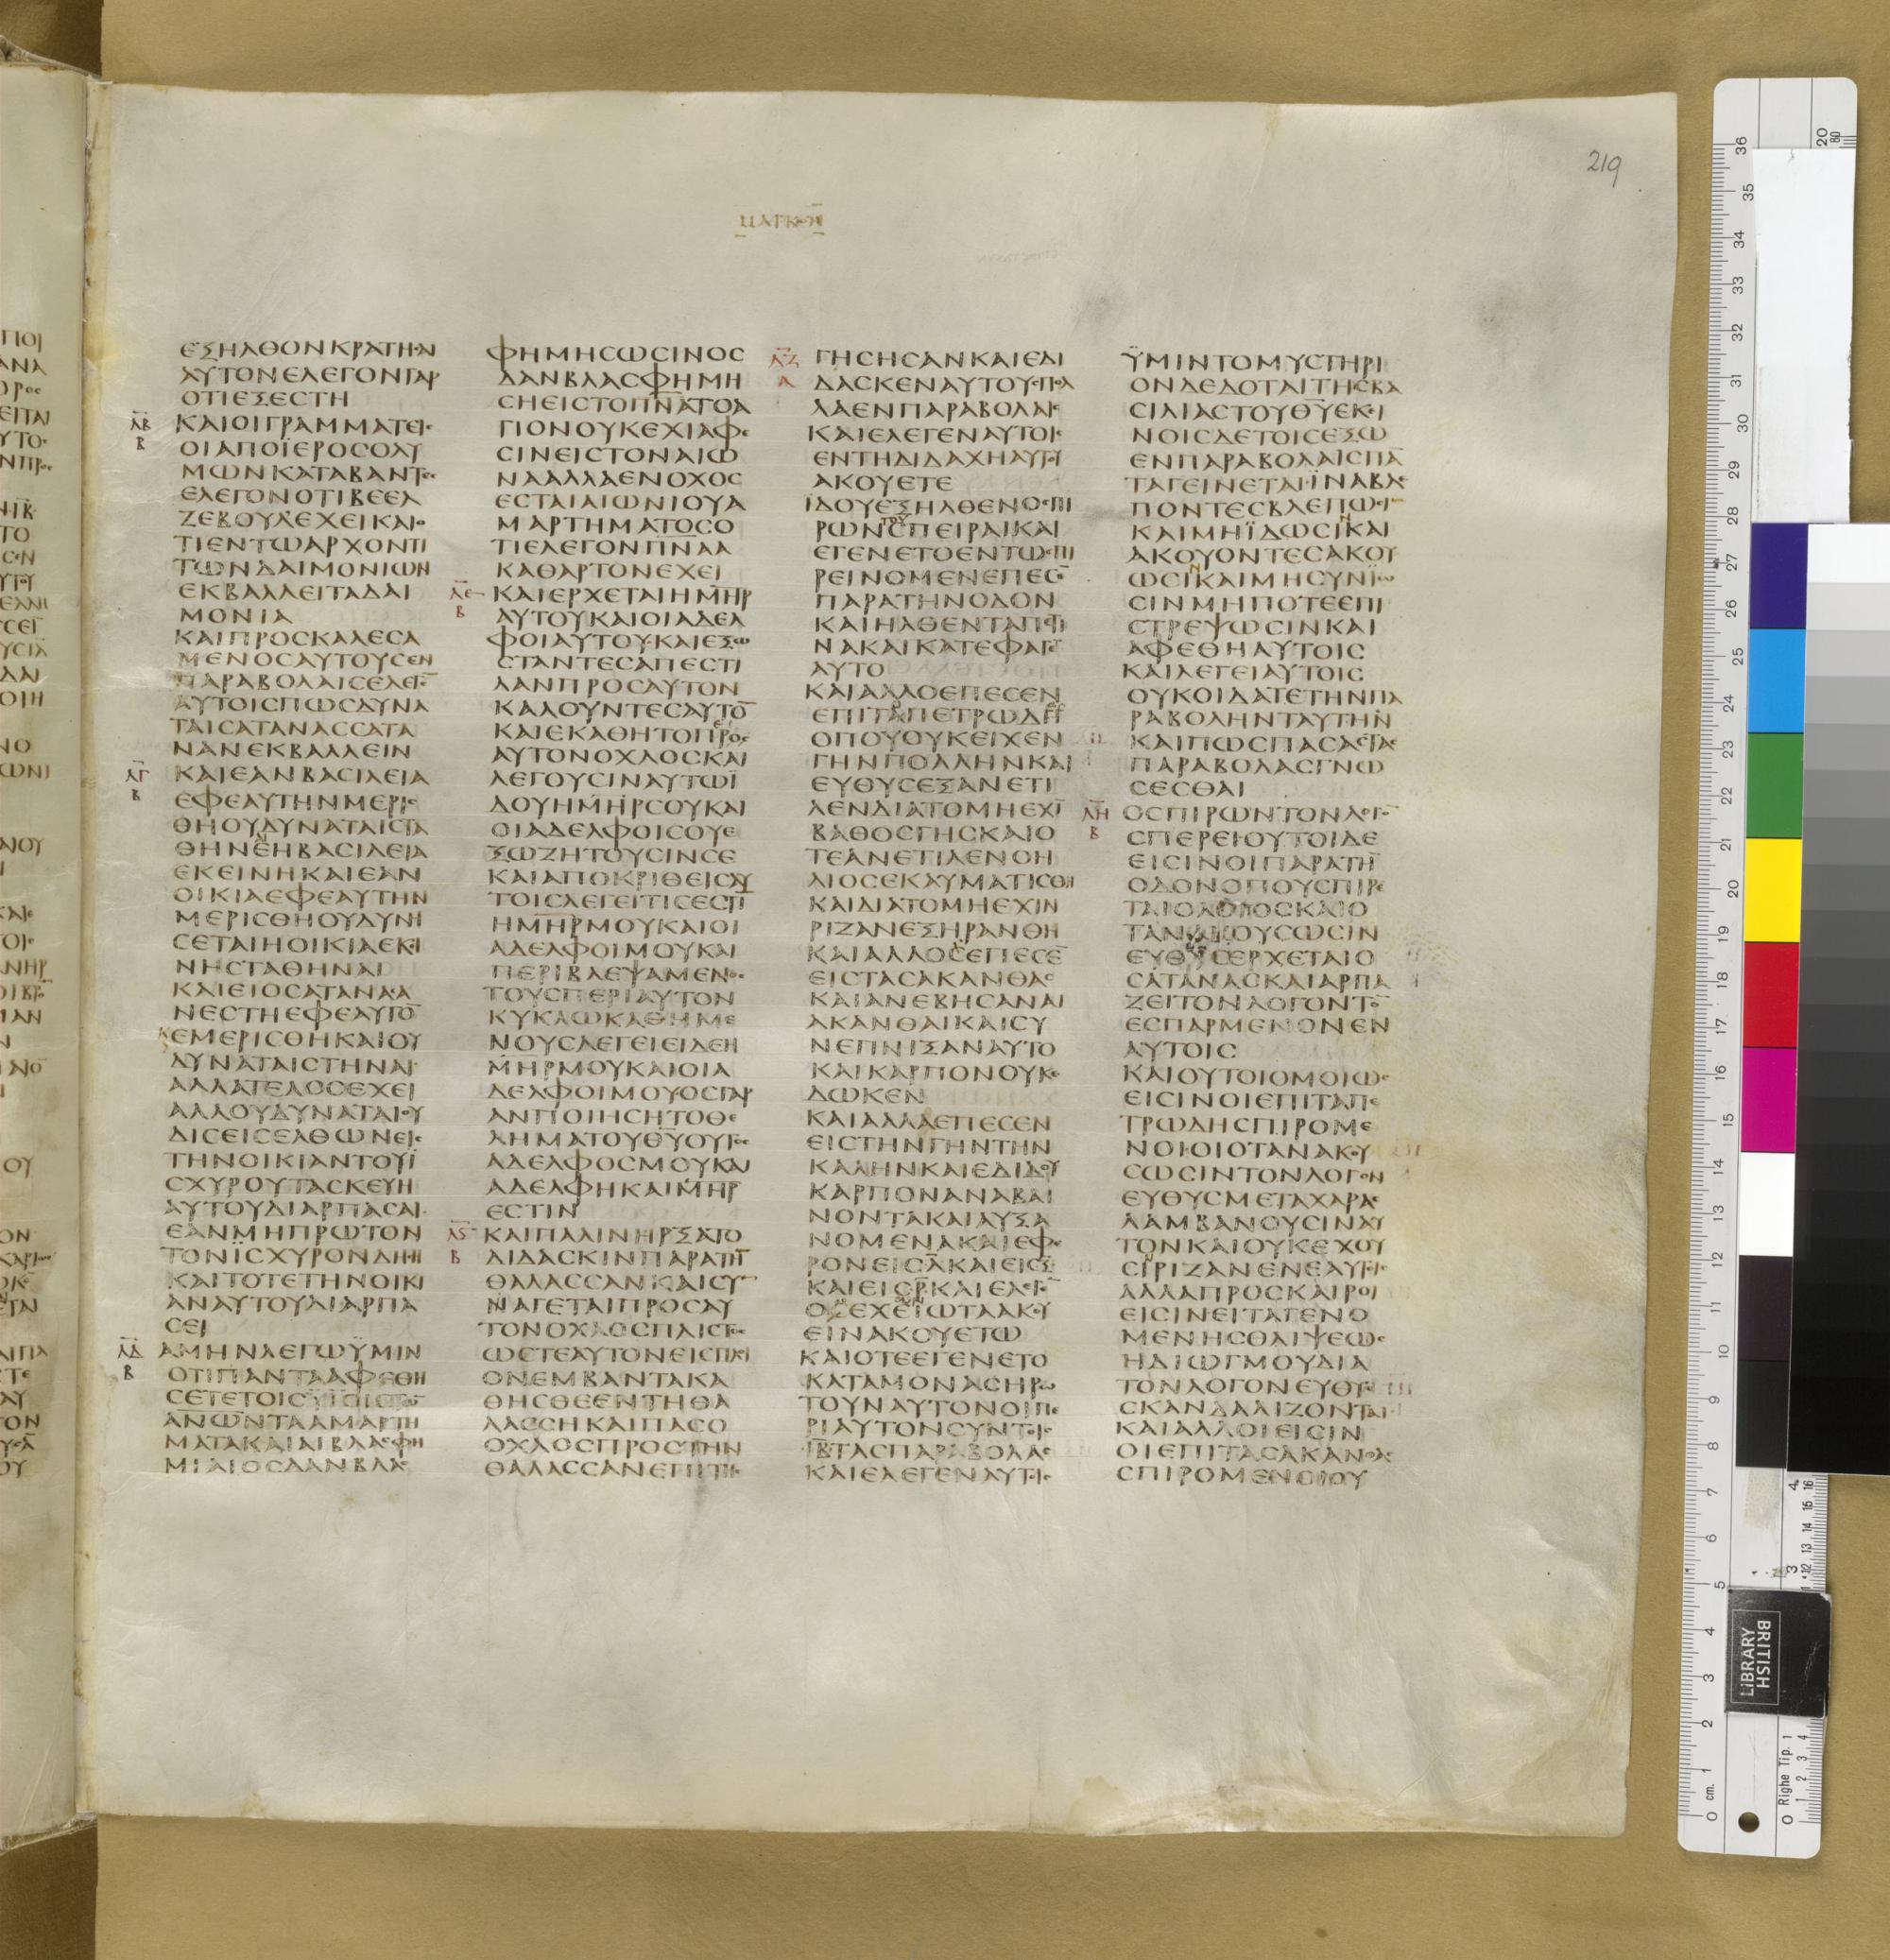 219
ΜΑΡΚΟΝ
ΕΞΗΛΘΟΝΚΡΑΤΗϹΑΙ
ΑΥΤΟΝΕΛΕΓΟΝΓΑΡ
ΟΤΙΕΞΕϹΤΗ
ΛΒ Β ΚΑΙΟΙΓΡΑΜΜΑΤΕΙϹ
ΟΙΑΠΟΪΕΡΟϹΟΛΥ
ΜΩΝΚΑΤΑΒΑΝΤΕϹ
ΕΛΕΓΟΝΟΤΙΒΕΕΛ
ΖΕΒΟΥΛΕΧΕΙΚΑΙΟ
ΤΙΕΝΤΩΑΡΧΟΝΤΙ
ΤΩΝΔΑΙΜΟΝΙΩΝ
ΕΚΒΑΛΛΕΙΤΑΔΑΙ
ΜΟΝΙΑ
ΚΑΙΠΡΟϹΚΑΛΕϹΑ
ΜΕΝΟϹΑΥΤΟΥϹΕΝ
ΠΑΡΑΒΟΛΑΙϹΕΛΕΓΕ̅
ΑΥΤΟΙϹΠΩϹΔΥΝΑ
ΤΑΙϹΑΤΑΝΑϹϹΑΤΑ
ΝΑΝΕΚΒΑΛΛΕΙΝ
ΛΓ Β ΚΑΙΕΑΝΒΑϹΙΛΕΙΑ
ΕΦΕΑΥΤΗΝΜΕΡΙϹ
ΘΗΟΥΔΥΝΑΤΑΙϹΤΑ
ΘΗΝΕΗΒΑϹΙΛΕΙΑ
ΕΚΕΙΝΗΚΑΙΕΑΝ
ΟΙΚΙΑΕΦΕΑΥΤΗΝ
ΜΕΡΙϹΘΗΟΥΔΥΝΗ
ϹΕΤΑΙΗΟΙΚΙΑΕΚΕΙ
ΝΗϹΤΑΘΗΝΑΙ
ΚΑΙΕΙΟϹΑΤΑΝΑϹΑ
ΝΕϹΤΗΕΦΕΑΥΤΟ̅
ΕΜΕΡΙϹΘΗΚΑΙΟΥ
ΔΥΝΑΤΑΙϹΤΗΝΑΙ
ΑΛΛΑΤΕΛΟϹΕΧΕΙ
ΑΛΛΟΥΔΥΝΑΤΑΙΟΥ
ΔΙϹΕΙϹΕΛΘΩΝΕΙϹ
ΤΗΝΟΙΚΙΑΝΤΟΥΪ
ϹΧΥΡΟΥΤΑϹΚΕΥΗ
ΑΥΤΟΥΔΙΑΡΠΑϹΑΙ
ΕΑΝΜΗΠΡΩΤΟΝ
ΤΟΝΪϹΧΥΡΟΝΔΗϹΗ
ΚΑΙΤΟΤΕΤΗΝΟΙΚΙ
ΑΝΑΥΤΟΥΔΙΑΡΠΑ
ϹΕΙ
ΛΔ Β ΑΜΗΝΛΕΓΩΫΜΙΝ
ΟΤΙΠΑΝΤΑΑΦΕΘΗ
ϹΕΤΕΤΟΙϹΫΙΟΙϹΤΩ̅
ΑΝΩΝΤΑΑΜΑΡΤΗ
ΜΑΤΑΚΑΙΑΙΒΛΑϹΦΗ
ΜΙΑΙΟϹΑΑΝΒΛΑϹ
ΦΗΜΗϹΩϹΙΝΟϹ
ΔΑΝΒΛΑϹΦΗΜΗ
ϹΗΕΙϹΤΟΠΝ̅ΑΤΟΑ
ΓΙΟΝΟΥΚΕΧΙΑΦΕ
ϹΙΝΕΙϹΤΟΝΑΙΩ
ΝΑΑΛΛΑΕΝΟΧΟϹ
ΕϹΤΑΙΑΙΩΝΙΟΥΑ
ΜΑΡΤΗΜΑΤΟϹΟ
ΤΙΕΛΕΓΟΝΠΝ̅ΑΑ
ΚΑΘΑΡΤΟΝΕΧΕΙ
ΛΕ Β ΚΑΙΕΡΧΕΤΑΙΗΜΗΡ
ΑΥΤΟΥΚΑΙΟΙΑΔΕΛ
ΦΟΙΑΥΤΟΥΚΑΙΕΞΩ
ϹΤΑΝΤΕϹΑΠΕϹΤΙ
ΛΑΝΠΡΟϹΑΥΤΟΝ
ΚΑΛΟΥΝΤΕϹΑΥΤΟ̅
ΚΑΙΕΚΑΘΗΤΟΠΡΟϹ
ΑΥΤΟΝΟΧΛΟϹΚΑΙ
ΛΕΓΟΥϹΙΝΑΥΤΩΪ
ΔΟΥΗΜΗΡϹΟΥΚΑΙ
ΟΙΑΔΕΛΦΟΙϹΟΥΕ
ΞΩΖΗΤΟΥϹΙΝϹΕ
ΚΑΙΑΠΟΚΡΙΘΕΙϹΑΥ
ΤΟΙϹΛΕΓΕΙΤΙϹΕϹΤΙ
ΗΜΗΡΜΟΥΚΑΙΟΙ
ΑΔΕΛΦΟΙΜΟΥΚΑΙ
ΠΕΡΙΒΛΕΨΑΜΕΝΟϹ
ΤΟΥϹΠΕΡΙΑΥΤΟΝ
ΚΥΚΛΩΚΑΘΗΜΕ
ΝΟΥϹΛΕΓΕΙΕΙΔΕΗ
ΜΗΡΜΟΥΚΑΙΟΙΑ
ΔΕΛΦΟΙΜΟΥΟϹΓΑΡ
ΑΝΠΟΙΗϹΗΤΟΘΕ
ΛΗΜΑΤΟΥΘΥΟΥΤΟϹ
ΑΔΕΛΦΟϹΜΟΥΚΑΙ
ΑΔΕΛΦΗΚΑΙΜΗΡ
ΕϹΤΙΝ
Λϛ Β ΚΑΙΠΑΛΙΝΗΡΞΑΤΟ
ΔΙΔΑϹΚΙΝΠΑΡΑΤΗ̅
ΘΑΛΑϹϹΑΝΚΑΙϹΥ̅
ΝΑΓΕΤΑΙΠΡΟϹΑΥ
ΤΟΝΟΧΛΟϹΠΛΙϹΤΟϹ
ΩϹΤΕΑΥΤΟΝΕΙϹΠΛΟΙ
ΟΝΕΜΒΑΝΤΑΚΑ
ΘΗϹΘΕΕΝΤΗΘΑ
ΛΑϹϹΗΚΑΙΠΑϹΟ
ΟΧΛΟϹΠΡΟϹΤΗΝ
ΘΑΛΑϹϹΑΝΕΠΙΤΗϹ
ΛΖ Α ΓΗϹΗϹΑΝΚΑΙΕΔΙ
ΔΑϹΚΕΝΑΥΤΟΥϹΠΟΛ
ΛΑΕΝΠΑΡΑΒΟΛΑΙϹ
ΚΑΙΕΛΕΓΕΝΑΥΤΟΙϹ
ΕΝΤΗΔΙΔΑΧΗΑΥΤΟΥ
ΑΚΟΥΕΤΕ
ΪΔΟΥΕΞΗΛΘΕΝΟϹΠΙ
ΡΩΝϹΠΕΙΡΑΙΚΑΙ
ΕΓΕΝΕΤΟΕΝΤΩϹΠΙ
ΡΕΙΝΟΜΕΝΕΠΕϹΕ̅
ΠΑΡΑΤΗΝΟΔΟΝ
ΚΑΙΗΛΘΕΝΤΑΠΕΤΙ
ΝΑΚΑΙΚΑΤΕΦΑΓΕ̅
ΑΥΤΟ
ΚΑΙΑΛΛΟΕΠΕϹΕΝ
ΕΠΙΤΑΠΕΤΡΩΔΗ
ΟΠΟΥΟΥΚΕΙΧΕΝ
ΓΗΝΠΟΛΛΗΝΚΑΙ
ΕΥΘΥϹΕΞΑΝΕΤΙ
ΛΕΝΔΙΑΤΟΜΗΕΧΙ̅
ΒΑΘΟϹΓΗϹΚΑΙΟ
ΤΕΑΝΕΤΙΛΕΝΟΗ
ΛΙΟϹΕΚΑΥΜΑΤΙϹΘΗ
ΚΑΙΔΙΑΤΟΜΗΕΧΙΝ
ΡΙΖΑΝΕΞΗΡΑΝΘΗ
ΚΑΙΑΛΛΟϹΕΠΕϹΕ̅
ΕΙϹΤΑϹΑΚΑΝΘΑϹ
ΚΑΙΑΝΕΒΗϹΑΝΑΙ
ΑΚΑΝΘΑΙΚΑΙϹΥ
ΝΕΠΝΙΞΑΝΑΥΤΟ
ΚΑΙΚΑΡΠΟΝΟΥΚΕ
ΔΩΚΕΝ
ΚΑΙΑΛΛΑΕΠΕϹΕΝ
ΕΙϹΤΗΝΓΗΝΤΗΝ
ΚΑΛΗΝΚΑΙΕΔΙΔΟΥ
ΚΑΡΠΟΝΑΝΑΒΑΙ
ΝΟΝΤΑΚΑΙΑΥΞΑ
ΝΟΜΕΝΑΚΑΙΕΦΕ
ΡΟΝΕΙϹΛ̅ΚΑΙΕΙϹΞ̅
ΚΑΙΕΙϹΡ̅ΚΑΙΕΛΕΓΕ̅
ΟϹΕΧΕΙΩΤΑΑΚΟΥ
ΕΙΝΑΚΟΥΕΤΩ
ΚΑΙΟΤΕΕΓΕΝΕΤΟ
ΚΑΤΑΜΟΝΑϹΗΡΩ
ΤΟΥΝΑΥΤΟΝΟΙΠΕ
ΡΙΑΥΤΟΝϹΥΝΤΟΙϹ
ΙΒ̅ΤΑϹΠΑΡΑΒΟΛΑϹ
ΚΑΙΕΛΕΓΕΝΑΥΤΟΙϹ
ΫΜΙΝΤΟΜΥϹΤΗΡΙ
ΟΝΔΕΔΟΤΑΙΤΗϹΒΑ
ϹΙΛΙΑϹΤΟΥΘΥ̅ΕΚΕΙ
ΝΟΙϹΔΕΤΟΙϹΕΞΩ
ΕΝΠΑΡΑΒΟΛΑΙϹΠΑ̅
ΤΑΓΕΙΝΕΤΑΙΪΝΑΒΛΕ
ΠΟΝΤΕϹΒΛΕΠΩϹΙ̅
ΚΑΙΜΗΪΔΩϹΙΚΑΙ
ΑΚΟΥΟΝΤΕϹΑΚΟΥ
ΩϹΙΚΑΙΜΗϹΥΝΪΩ
ϹΙΝΜΗΠΟΤΕΕΠΙ
ϹΤΡΕΨΩϹΙΝΚΑΙ
ΑΦΕΘΗΑΥΤΟΙϹ
ΚΑΙΛΕΓΕΙΑΥΤΟΙϹ
ΟΥΚΟΙΔΑΤΕΤΗΝΠΑ
ΡΑΒΟΛΗΝΤΑΥΤΗΝ
ΚΑΙΠΩϹΠΑϹΑϹΤΑϹ
ΠΑΡΑΒΟΛΑϹΓΝΩ
ϹΕϹΘΑΙ
ΛΗ Β ΟϹΠΙΡΩΝΤΟΝΛΟΓΟ̅
ϹΠΕΡΕΙΟΥΤΟΙΔΕ
ΕΙϹΙΝΟΙΠΑΡΑΤΗ̅
ΟΔΟΝΟΠΟΥϹΠΙΡΕ
ΤΑΙΟΛΟΓΟϹΚΑΙΟ
ΤΑΝΑΚΟΥϹΩϹΙΝ
ΕΥΘΥϹΕΡΧΕΤΑΙΟ
ϹΑΤΑΝΑϹΚΑΙΑΡΠΑ
ΖΕΙΤΟΝΛΟΓΟΝΤΟ̅
ΕϹΠΑΡΜΕΝΟΝΕΝ
ΑΥΤΟΙϹ
ΚΑΙΟΥΤΟΙΟΜΟΙΩϹ
ΕΙϹΙΝΟΙΕΠΙΤΑΠΕ
ΤΡΩΔΗϹΠΙΡΟΜΕ
ΝΟΙΟΙΟΤΑΝΑΚΟΥ
ϹΩϹΙΝΤΟΝΛΟΓΟΝ
ΕΥΘΥϹΜΕΤΑΧΑΡΑϹ
ΛΑΜΒΑΝΟΥϹΙΝΑΥ
ΤΟΝΚΑΙΟΥΚΕΧΟΥ
ϹΙΡΙΖΑΝΕΝΕΑΥΤΟΙϹ
ΑΛΛΑΠΡΟϹΚΑΙΡΟΙ
ΕΙϹΙΝΕΙΤΑΓΕΝΟ
ΜΕΝΗϹΘΛΙΨΕΩϹ
ΗΔΙΩΓΜΟΥΔΙΑ
ΤΟΝΛΟΓΟΝΕΥΘΥϹ
ϹΚΑΝΔΑΛΙΖΟΝΤΑΙ
ΚΑΙΑΛΛΟΙΕΙϹΙΝ
ΟΙΕΠΙΤΑϹΑΚΑΝΘΑϹ
ϹΠΙΡΟΜΕΝΟΙΟΥ
BRITISH LIBRARY